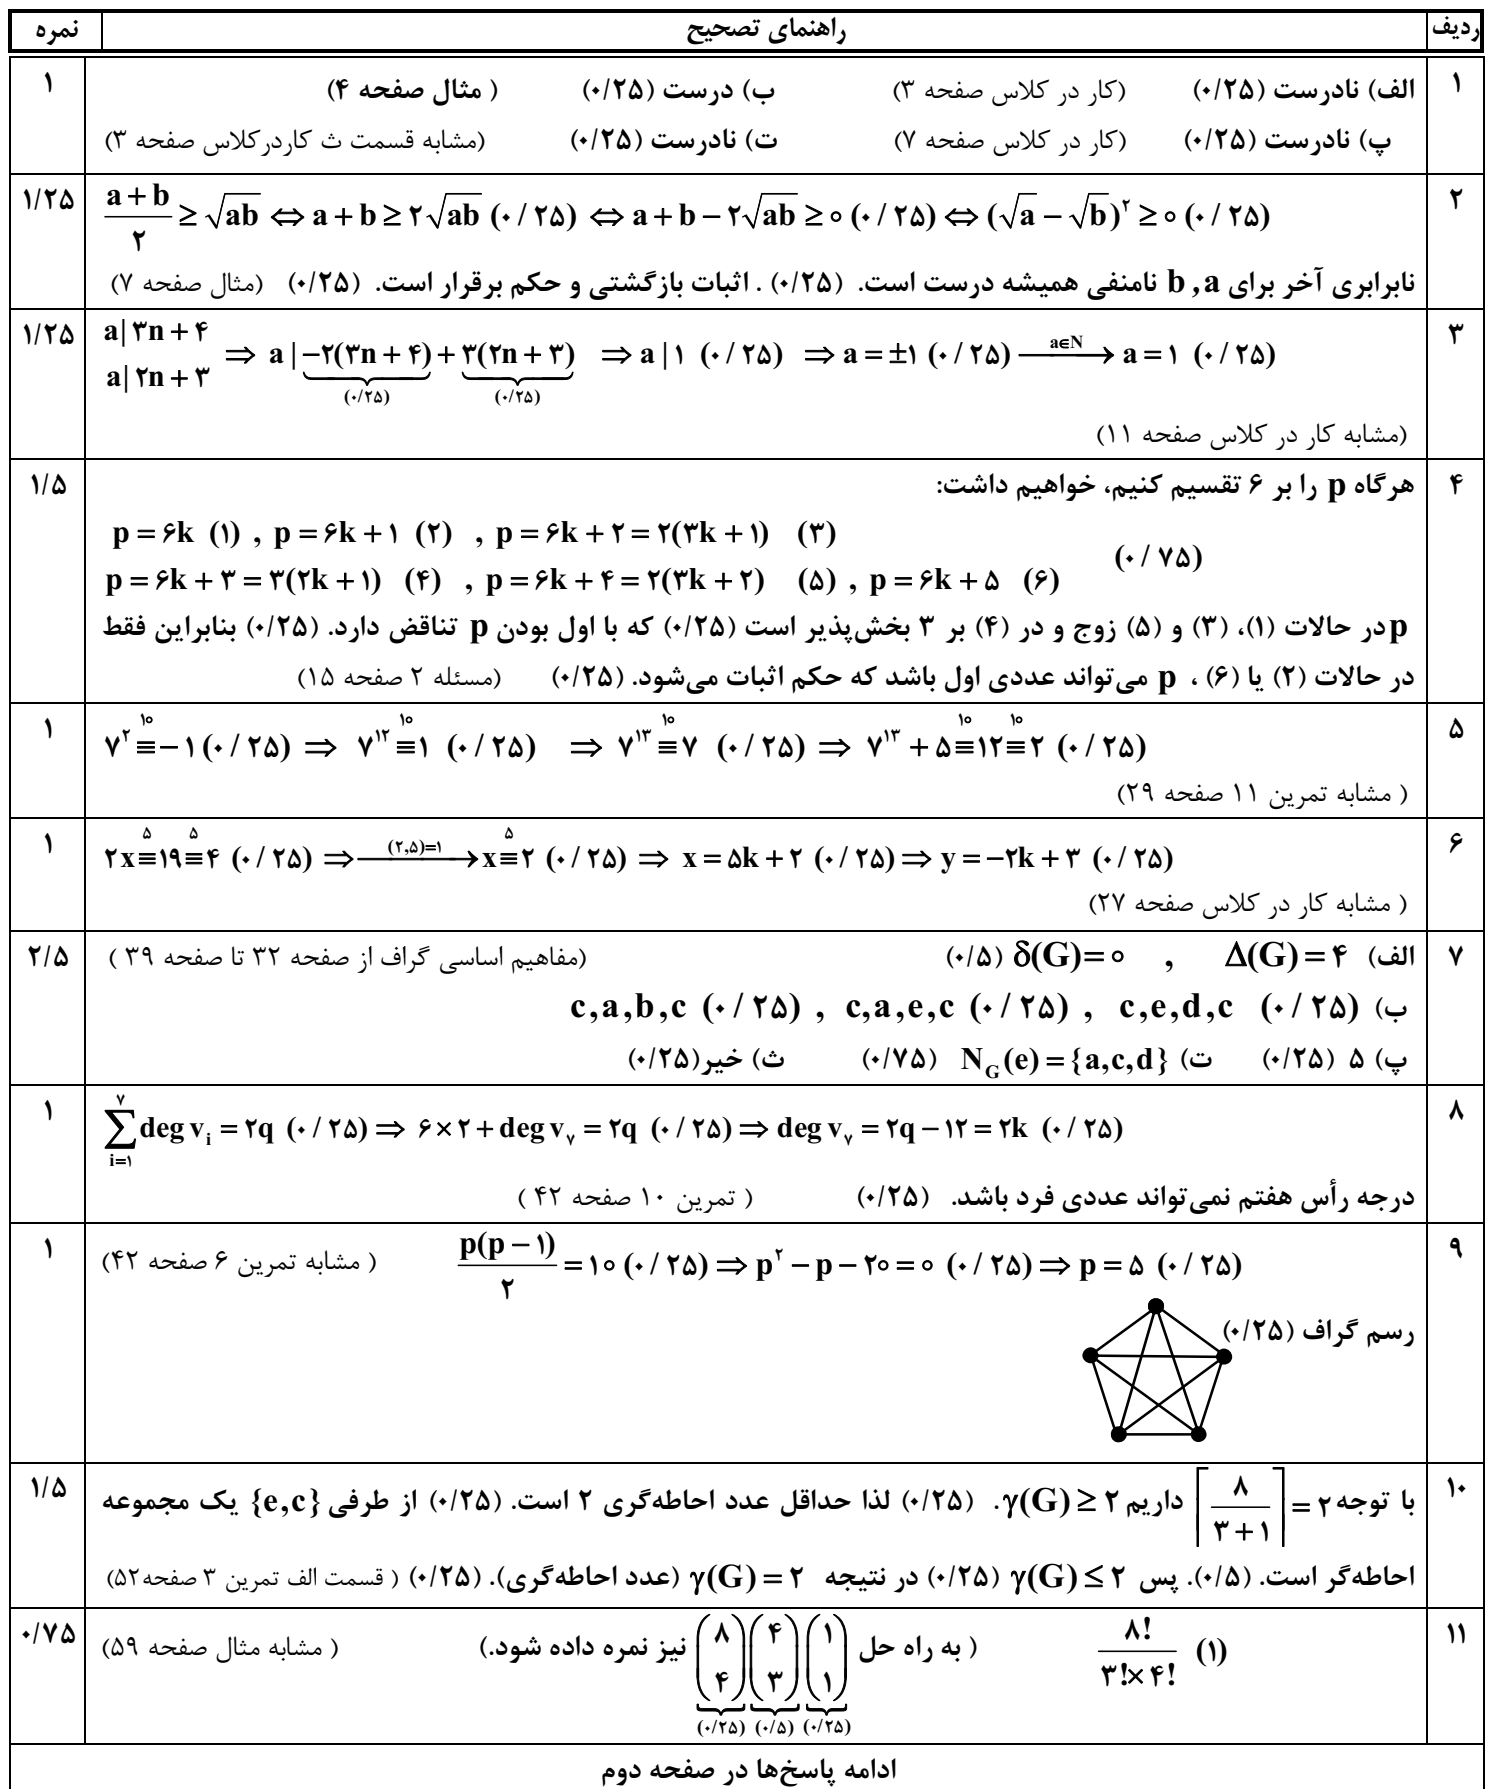 ردیف راهنمای تصحیح نمره
۱ الف) نادرست (۰/۲۵) (کار در کلاس صفحه ۳) ب) درست (۰/۲۵) ( مثال صفحه ۴) ۱
پ) نادرست (۰/۲۵) (کار در کلاس صفحه ۷) ت) نادرست (۰/۲۵) (مشابه قسمت ث کاردرکلاس صفحه ۳)
۲ (a + b)/۲ ≥ √ab ⇔ a + b ≥ ۲√ab (۰/۲۵) ⇔ a + b − ۲√ab ≥ ۰ (۰/۲۵) ⇔ (√a − √b)^۲ ≥ ۰ (۰/۲۵) ۱/۲۵
نابرابری آخر برای b , a نامنفی همیشه درست است. (۰/۲۵) . اثبات بازگشتی و حکم برقرار است. (۰/۲۵) (مثال صفحه ۷)
۳ a| ۳n + ۴ ۱/۲۵
a| ۲n + ۳ ⇒ a | −۲(۳n + ۴) (۰/۲۵) + ۳(۲n + ۳) (۰/۲۵) ⇒ a | ۱ (۰/۲۵) ⇒ a = ±۱ (۰/۲۵) —a∈N→ a = ۱ (۰/۲۵)
(مشابه کار در کلاس صفحه ۱۱)
۴ هرگاه p را بر ۶ تقسیم کنیم، خواهیم داشت: ۱/۵
p = ۶k (۱) , p = ۶k + ۱ (۲) , p = ۶k + ۲ = ۲(۳k + ۱) (۳)
(۰/۷۵)
p = ۶k + ۳ = ۳(۲k + ۱) (۴) , p = ۶k + ۴ = ۲(۳k + ۲) (۵) , p = ۶k + ۵ (۶)
p در حالات (۱)، (۳) و (۵) زوج و در (۴) بر ۳ بخش‌پذیر است (۰/۲۵) که با اول بودن p تناقض دارد. (۰/۲۵) بنابراین فقط
در حالات (۲) یا (۶) ، p می‌تواند عددی اول باشد که حکم اثبات می‌شود. (۰/۲۵) (مسئله ۲ صفحه ۱۵)
۵ ۷^۲ ≡^۱۰ −۱ (۰/۲۵) ⇒ ۷^۱۲ ≡^۱۰ ۱ (۰/۲۵) ⇒ ۷^۱۳ ≡^۱۰ ۷ (۰/۲۵) ⇒ ۷^۱۳ + ۵ ≡^۱۰ ۱۲ ≡^۱۰ ۲ (۰/۲۵) ۱
( مشابه تمرین ۱۱ صفحه ۲۹)
۶ ۲x ≡^۵ ۱۹ ≡^۵ ۴ (۰/۲۵) ⇒ —(۲,۵)=۱→ x ≡^۵ ۲ (۰/۲۵) ⇒ x = ۵k + ۲ (۰/۲۵) ⇒ y = −۲k + ۳ (۰/۲۵) ۱
( مشابه کار در کلاس صفحه ۲۷)
۷ الف) Δ(G) = ۴ , δ(G) = ۰ (۰/۵) (مفاهیم اساسی گراف از صفحه ۳۲ تا صفحه ۳۹ ) ۲/۵
ب) c,a,b,c (۰/۲۵) , c,a,e,c (۰/۲۵) , c,e,d,c (۰/۲۵)
پ) ۵ (۰/۲۵) ت) N_G(e) = {a,c,d} (۰/۷۵) ث) خیر(۰/۲۵)
۸ ∑_{i=۱}^{۷} deg v_i = ۲q (۰/۲۵) ⇒ ۶×۲ + deg v_۷ = ۲q (۰/۲۵) ⇒ deg v_۷ = ۲q − ۱۲ = ۲k (۰/۲۵) ۱
درجه رأس هفتم نمی‌تواند عددی فرد باشد. (۰/۲۵) ( تمرین ۱۰ صفحه ۴۲ )
۹ p(p − ۱)/۲ = ۱۰ (۰/۲۵) ⇒ p^۲ − p − ۲۰ = ۰ (۰/۲۵) ⇒ p = ۵ (۰/۲۵) ( مشابه تمرین ۶ صفحه ۴۲) ۱
رسم گراف (۰/۲۵)
۱۰ با توجه ⌈۸/(۳ + ۱)⌉ = ۲ داریم γ(G) ≥ ۲. (۰/۲۵) لذا حداقل عدد احاطه‌گری ۲ است. (۰/۲۵) از طرفی {e,c} یک مجموعه ۱/۵
احاطه‌گر است. (۰/۵). پس γ(G) ≤ ۲ (۰/۲۵) در نتیجه γ(G) = ۲ (عدد احاطه‌گری). (۰/۲۵) ( قسمت الف تمرین ۳ صفحه۵۲)
۱۱ ۸!/(۳!×۴!) (۱) ( به راه حل (۸ ۴) (۰/۲۵) (۴ ۳) (۰/۵) (۱ ۱) (۰/۲۵) نیز نمره داده شود.) ( مشابه مثال صفحه ۵۹) ۰/۷۵
ادامه پاسخ‌ها در صفحه دوم